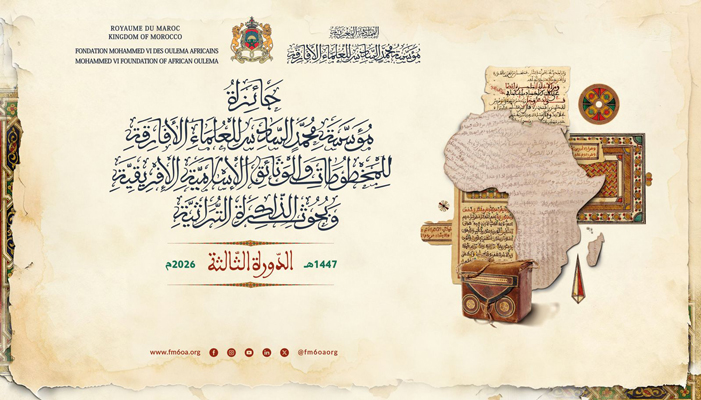 ROYAUME DU MAROC
KINGDOM OF MOROCCO
FONDATION MOHAMMED VI DES OULEMA AFRICAINS
MOHAMMED VI FOUNDATION OF AFRICAN OULEMA
المملكة المغربية
مؤسسة محمد السادس للعلماء الأفارقة
جائزة
مؤسسة محمد السادس للعلماء الأفارقة
للمخطوطات والوثائق الإسلامية الإفريقية
وبحوث الذاكرة التراثية
1447هـ الدورة الثالثة 2026م
www.fm6oa.org @fm6oaorg